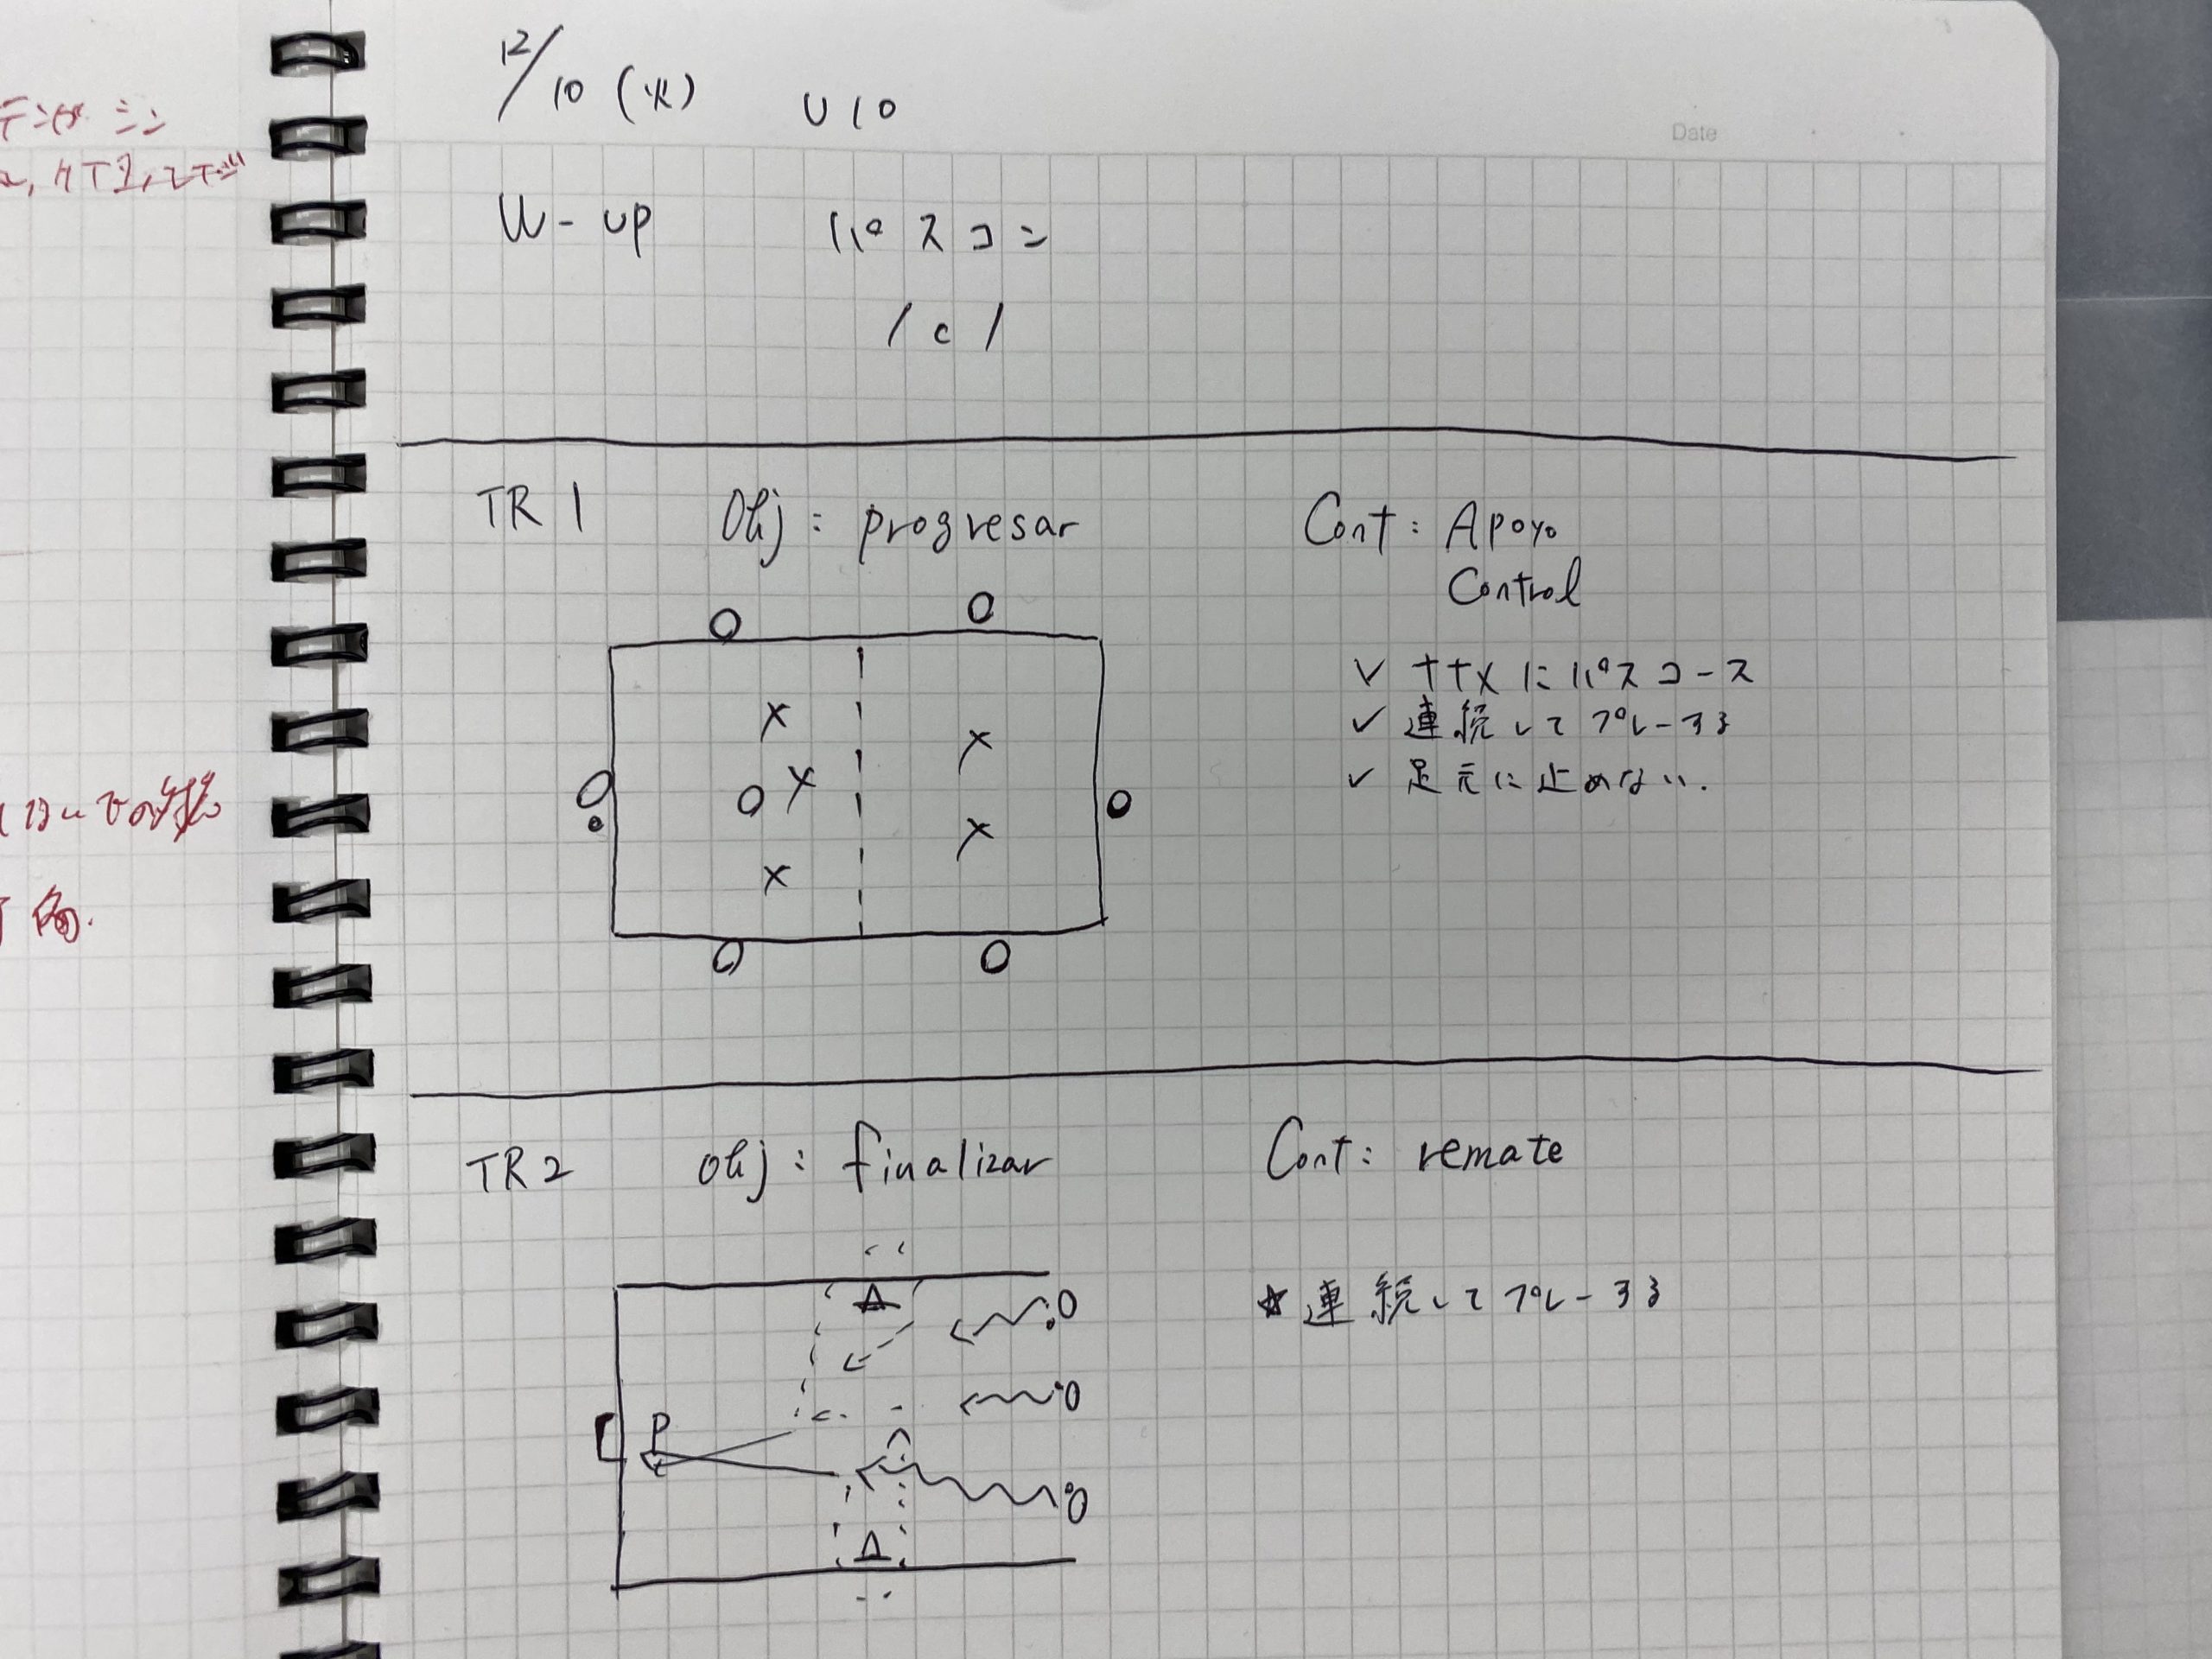 12/10 (火) U10
Date
W-up パスコン
1c1
TR 1 Obj: progresar Cont: Apoyo
Control
✓ ナナメにパスコース
✓ 連続してプレーする
✓ 足元に止めない.
TR2 obj: finalizar Cont: remate
P
☆ 連続してプレーする